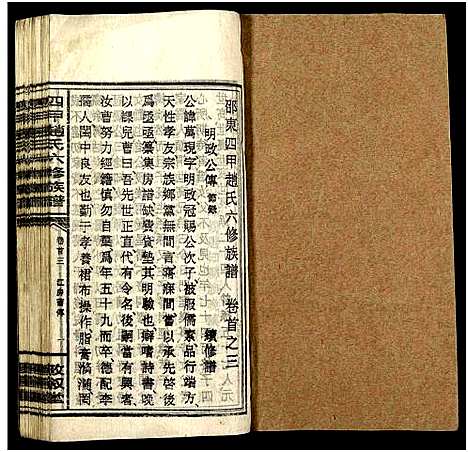 邵東四甲趙氏六修族譜 卷首之三
明政公傳 節錄 續修譜
公諱萬現字明政冠賜公次子被服儒素品行端方
天性孝友宗族鄉黨無間言寤寐間嘗以承先啓後
為亟亟纂集房譜缺費貲墊其明驗也癖嗜詩書晚
以課兒曹曰吾先世正直代有令名後嗣當有興者
汝曹努力經籍慎勿自棄為年五十九而卒德配李
孺人閨中良友也勤于孝養裙布操作脂膏滫瀡罔
四甲趙氏六修族譜
卷首三